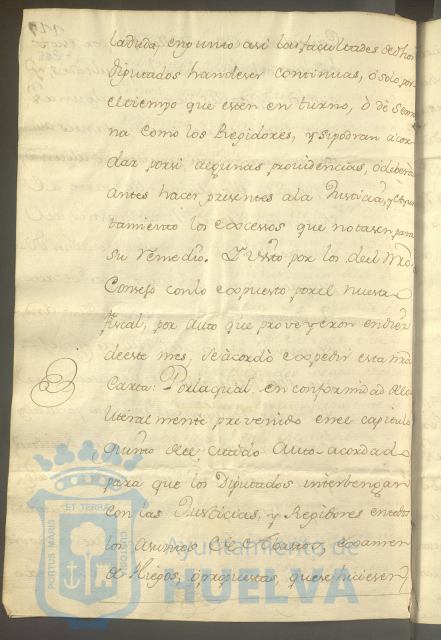 la duda, en punto asi las facultades de dhos
Diputados han de ser continuas, ò solo por
el tiempo que estèn en turno, ò de Sema
na como los Regidores, y si podràn acor
dar por si algunas providencias, ò deberàn
antes hacer presentes a la Justicia, y Ayun
tamiento los excesos que notasen, para
su remedio. Y visto por los del nro
Consejo con lo expuesto por el nuestro
Fiscal, por auto que proveyeron en diez
de este mes, se acordò expedir esta nra
Carta: Por la qual en conformidad de lo
literalmente prevenido en el capitulo
quinto del citado Auto-acordado
para que los Diputados intervengan
con las Justicias, y Regidores en todos
los asuntos de Abastos examen
de Pliegos, ò propuestas, que se hicieren
PORTUS MARIS
ET TERRAE
CUSTODIA
Ayuntamiento de
HUELVA